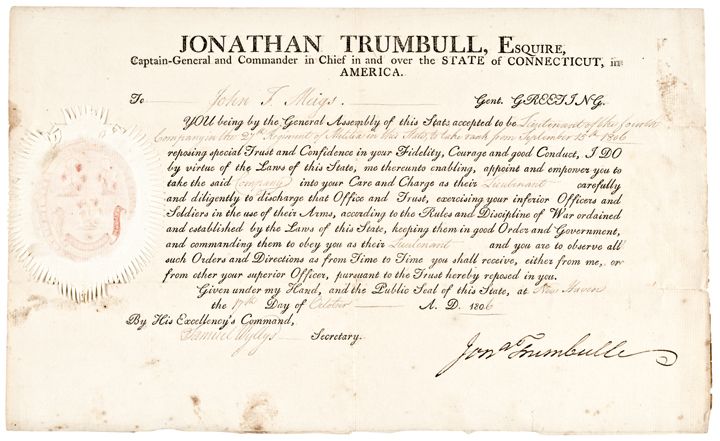 JONATHAN TRUMBULL, ESQUIRE,
Captain-General and Commander in Chief in and over the STATE of CONNECTICUT, in
AMERICA.
To John T. Meigs. Gent. GREETING.
YOU being by the General Assembly of this State accepted to be Lieutenant of the fourth
Company in the 27th Regiment of Militia in this State, to take rank from September 15th 1806
reposing special Trust and Confidence in your Fidelity, Courage and good Conduct, I DO
by virtue of the Laws of this State, me thereunto enabling, appoint and empower you to
take the said Company into your Care and Charge as their Lieutenant carefully
and diligently to discharge that Office and Trust, exercising your inferior Officers and
Soldiers in the use of their Arms, according to the Rules and Discipline of War ordained
and established by the Laws of this State, keeping them in good Order and Government,
and commanding them to obey you as their Lieutenant and you are to observe all
such Orders and Directions as from Time to Time you shall receive, either from me, or
from other your superior Officer, pursuant to the Trust hereby reposed in you.
Given under my Hand, and the Public Seal of this State, at New Haven
the 17th Day of October A. D. 1806
By His Excellency's Command,
Samuel Wyllys Secretary.
Jonth Trumbull